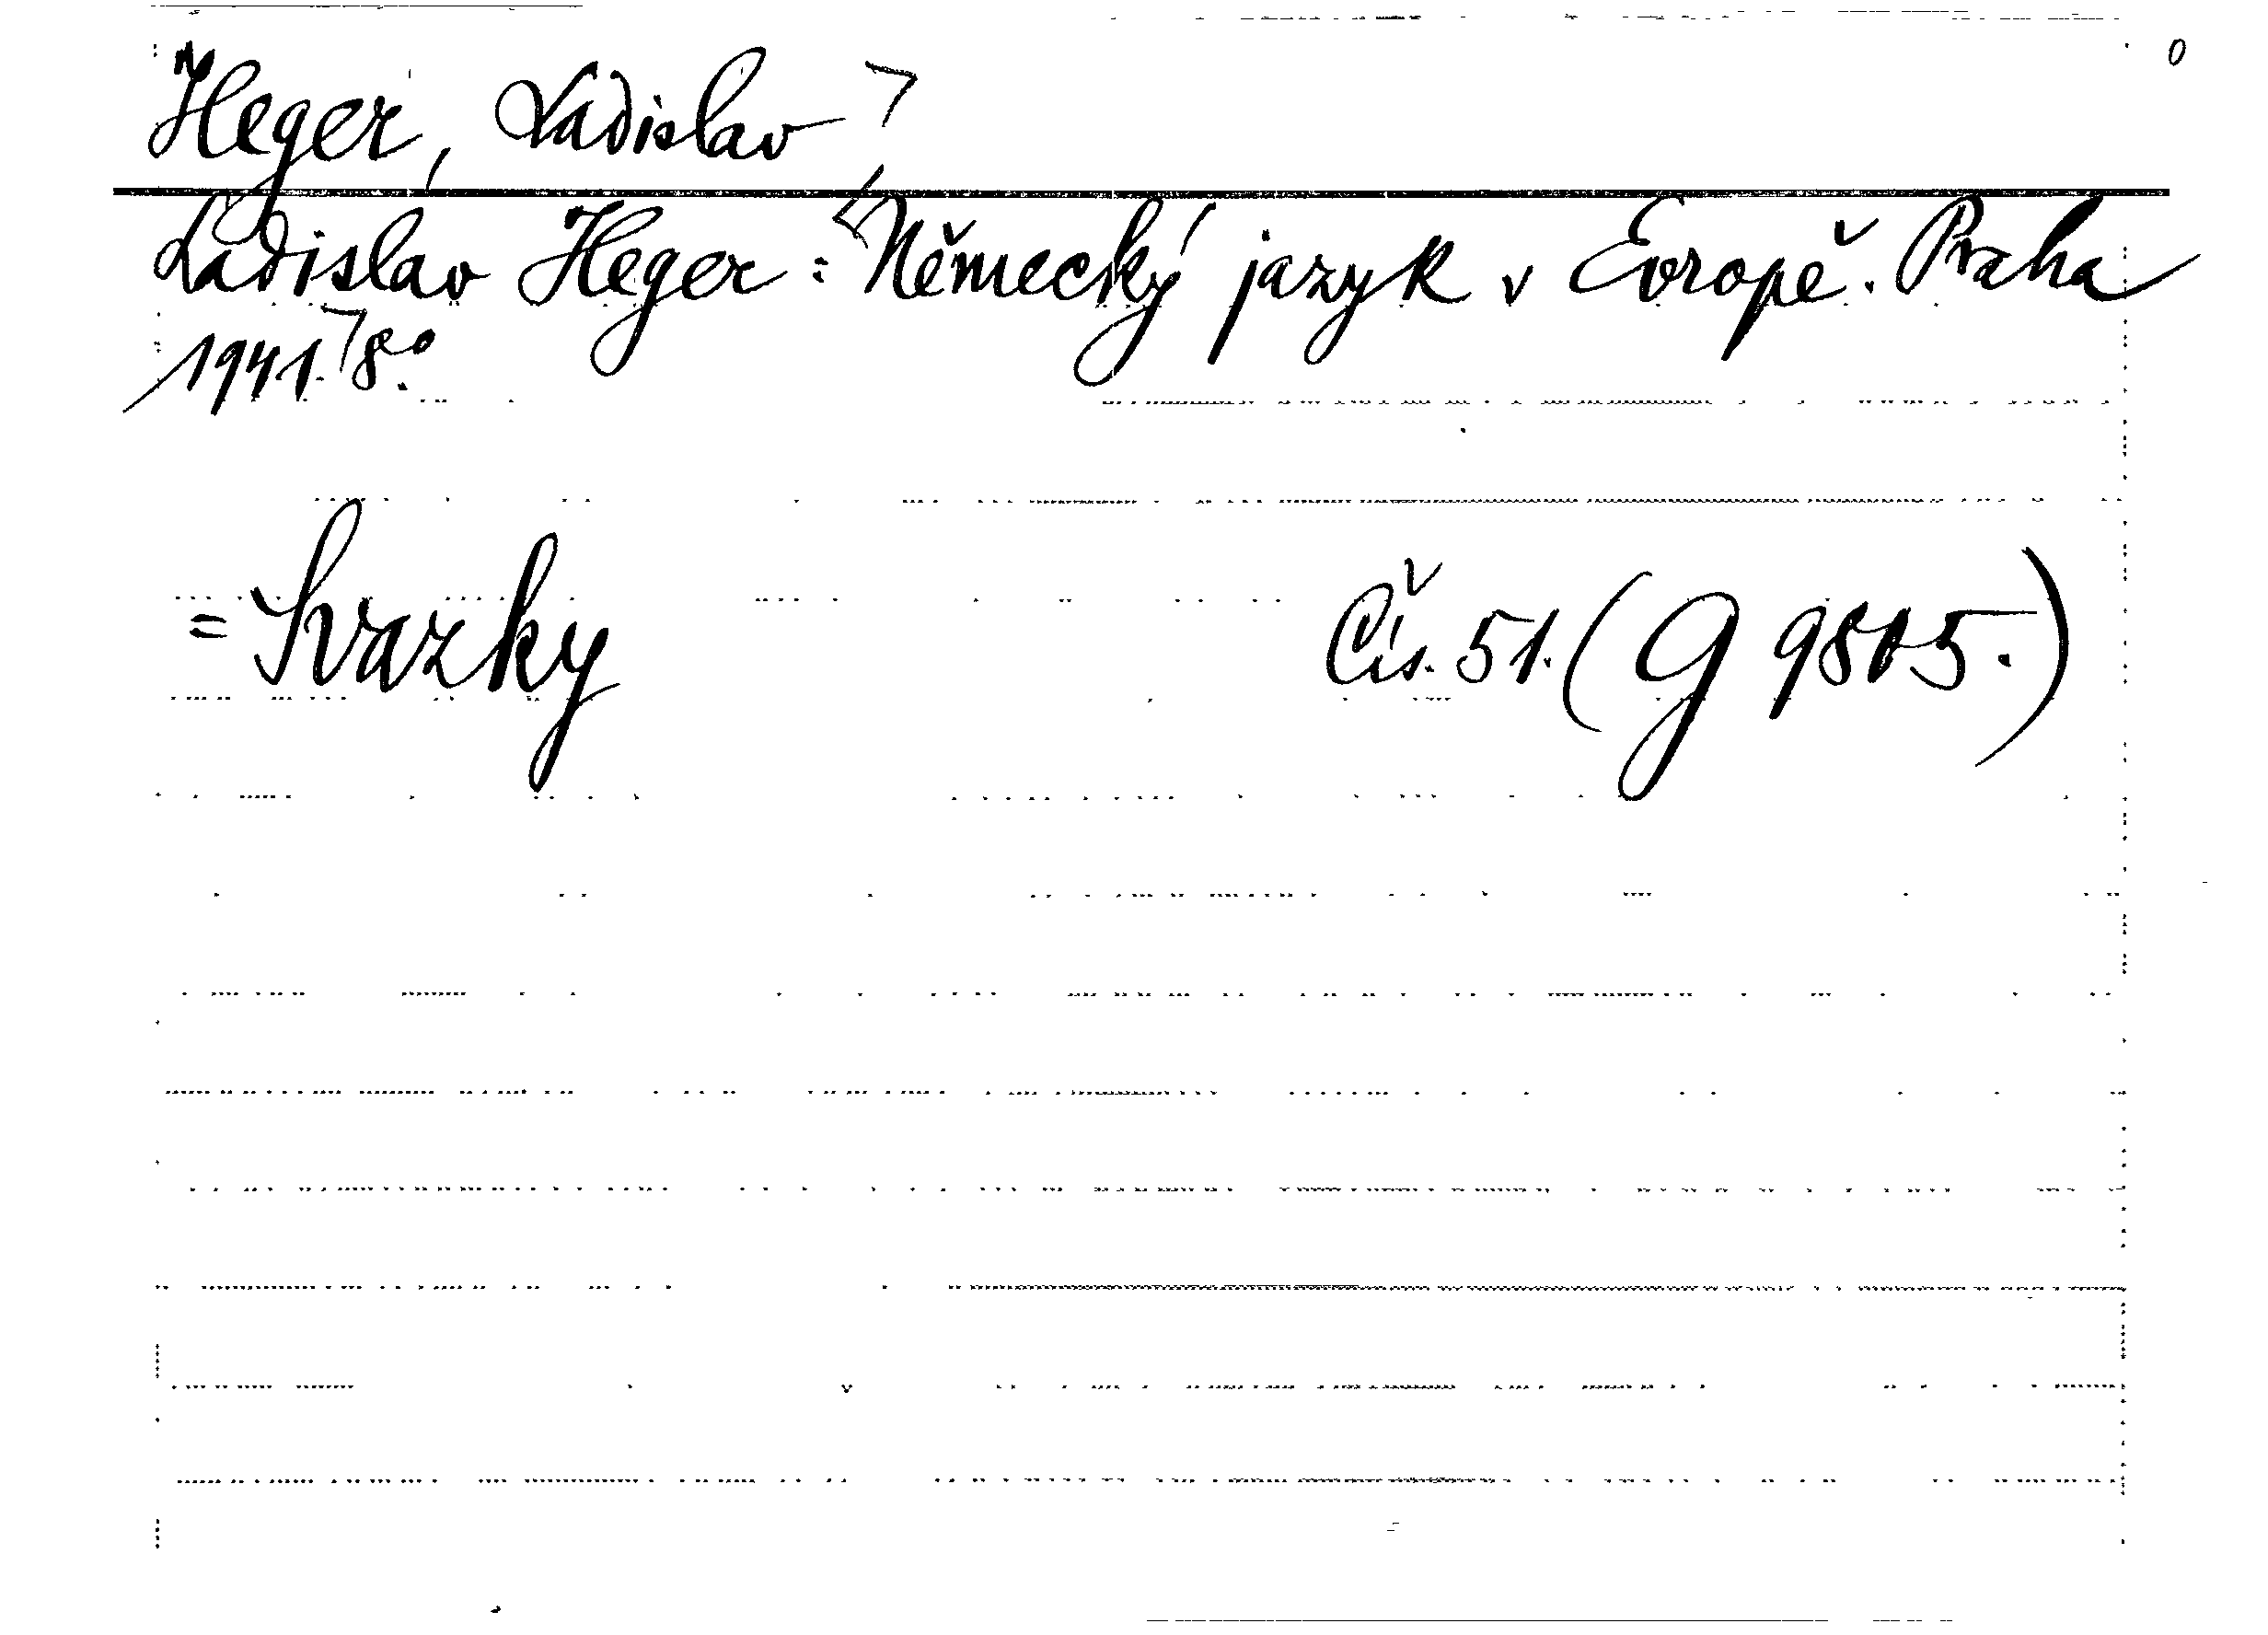 Heger, Ladislav
Ladislav Heger: Německý jazyk v Evropě. Praha
1941. 8°.
= Svazky Čís. 51. (G 9805.)